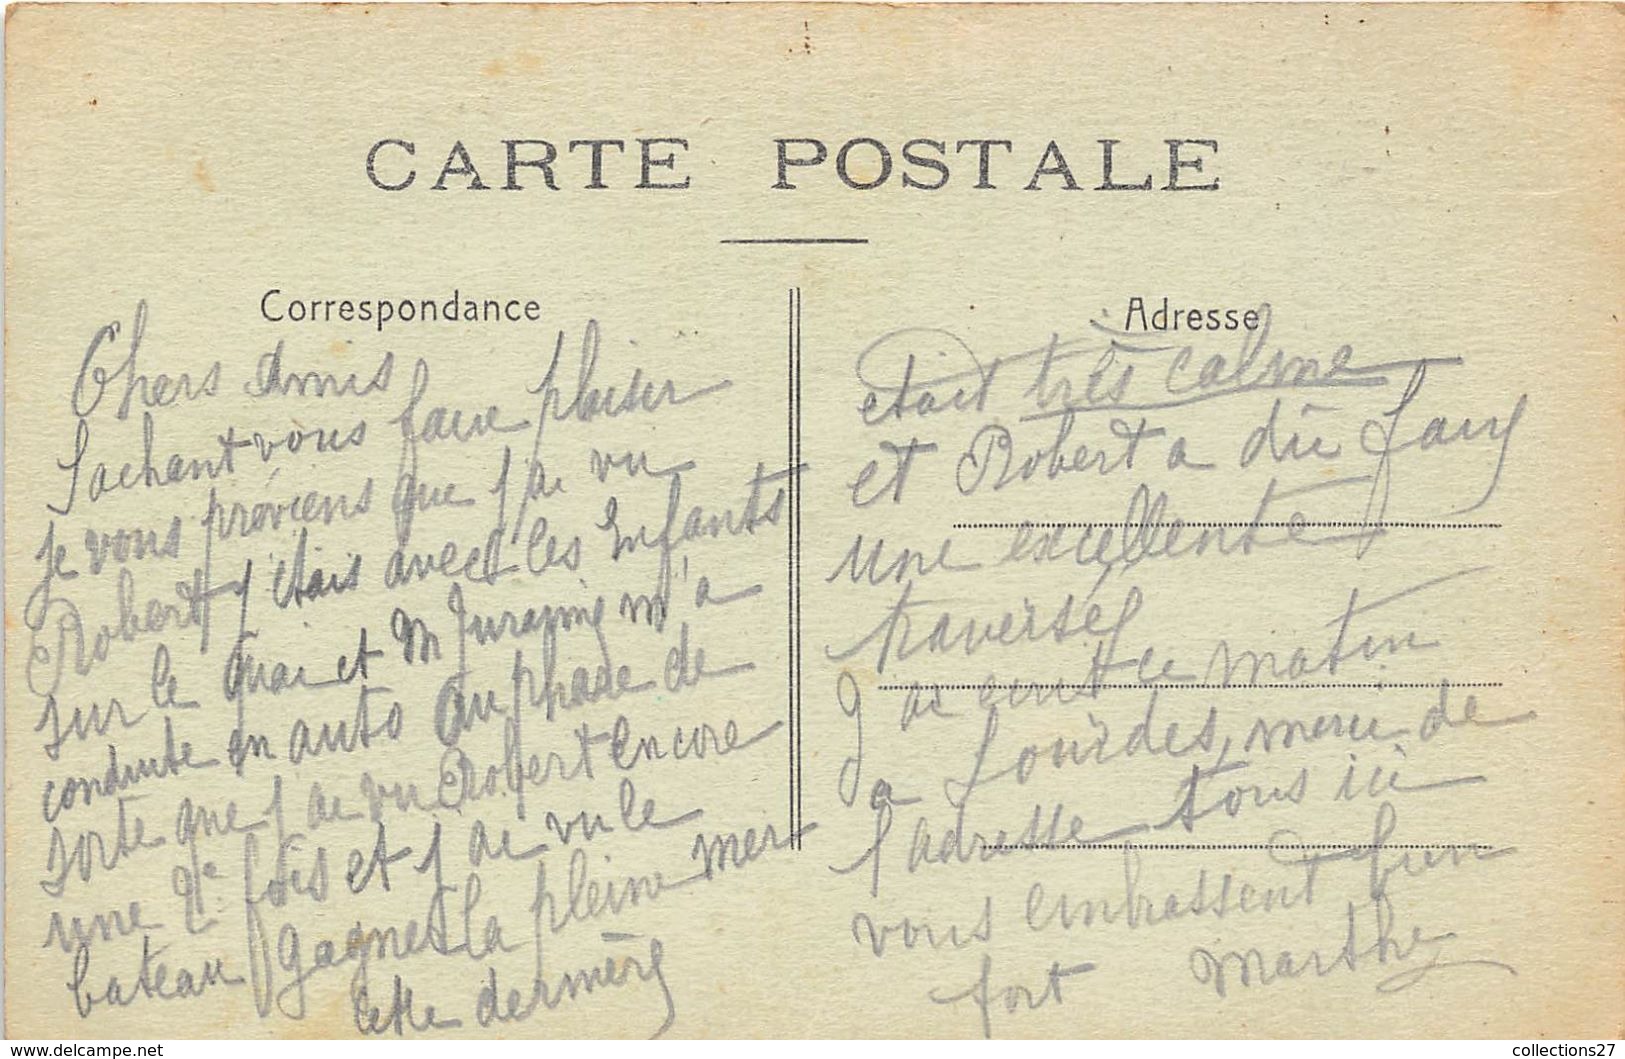 CARTE POSTALE
Correspondance
Chers Amis
Sachant vous faire plaisir
je vous préviens que j'ai vu
Robert j'étais avec les Enfants
sur le quai et M m'a
conduite en auto au phare de
sorte que j'ai vu Robert encore
une 2e fois et j'ai vu le
bateau gagner la pleine mer
cette dernière
Adresse
était très calme
et Robert a dû faire
une excellente
traversée
J'ai écrit ce matin
a Lourdes, merci de
l'adresse tous ici
vous embrassent bien
fort Marthe
collections27